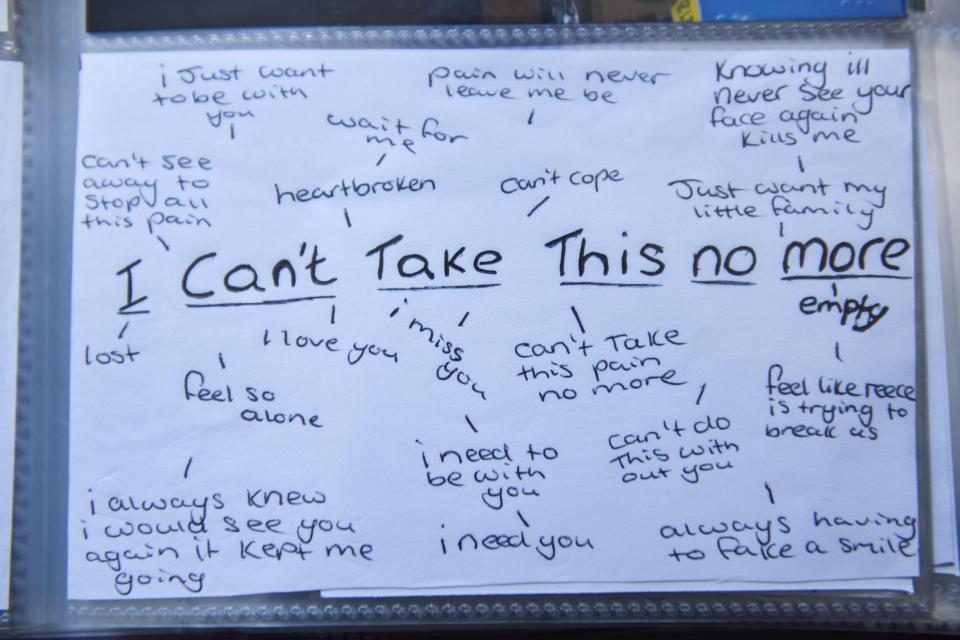 i Just want
to be with
you
pain will never
leave me be
Knowing ill
never see your
face again
kills me
wait for
me
can't see
away to
stop all
this pain
heartbroken
can't cope
Just want my
little family
I Can't Take This no more
lost
I love you
i miss
you
can't Take
this pain
no more
empty
feel so
alone
feel like reece
is trying to
break us
i need to
be with
you
can't do
This with
out you
i always knew
i would see you
again it kept me
going
i need you
always having
to fake a smile